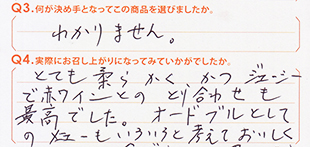 Q3.何が決め手となってこの商品を選びましたか。
わかりません。
Q4.実際にお召し上がりになってみていかがでしたか。
とても柔らかく、かつ ジューシー
で赤ワインとの とり合わせも
最高でした。 オードブルとして
の メニューもいろいろと考えて おいしく